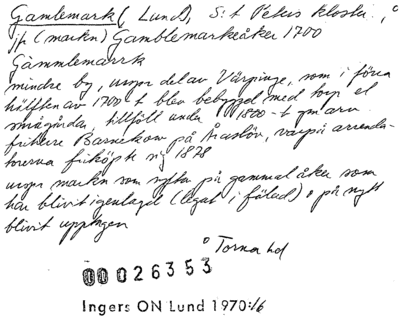 Gamlemark (Lund), S:t Peters kloster, °
jfr (markn) Gamblemarkeåker 1700
Gammlemarrk
mindre by, urspr del av Vårpinge, som i förra
hälften av 1700-t blev bebyggd med torp el
smågårdar, tillföll under 1800-t gm arv
friherre Barnekow på Åraslöv, varpå arrenda-
torerna friköpte sig 1878
urspr markn som syftar på gammal åker som
har blivit igenlagd (legat i fälad) o på nytt
blivit upptagen
° Torna hd
00026353
Ingers ON Lund 1970:16